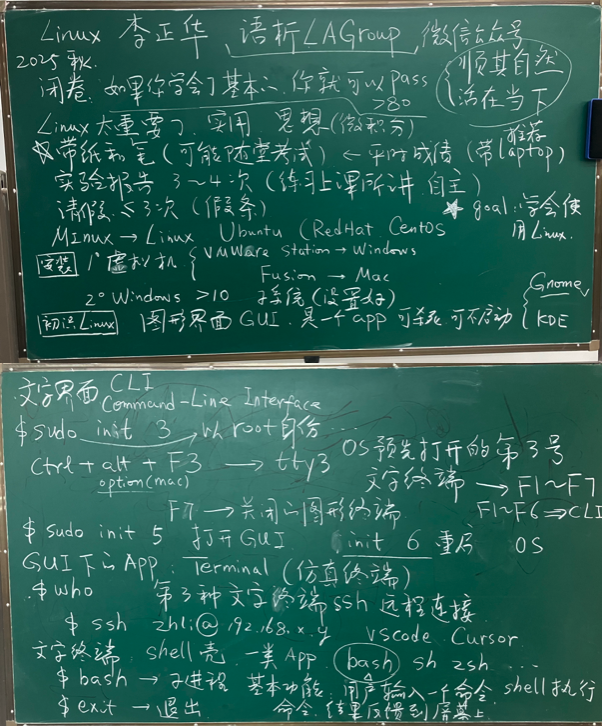 Linux 李正华 语析LAGroup 微信公众号
2025秋
闭卷: 如果你学会了基本的, 你就可以pass
>80
顺其自然
活在当下
Linux 太重要了. 实用 思想(微积分)
☆带纸和笔(可能随堂考试) ← 平时成绩 (带laptop)
推荐
实验报告 3~4次 (练习上课所讲, 自主)
请假 ≤3次 (假条)
☆ goal: 学会使
用Linux.
Minux → Linux Ubuntu (RedHat CentOS
安装 1° 虚拟机 { VMWare Station → Windows
Fusion → Mac
2° Windows >10 子系统(设置好)
初识Linux 图形界面 GUI. 是一个app 可杀死, 可不启动 { Gnome,
KDE
文字界面 CLI
Command-Line Interface
$ sudo init 3 以root自份
Ctrl + alt + F3 → tty3
option(mac)
OS预先打开的第3号
文字终端 → F1~F7
F7 → 关闭的图形终端 F1~F6 ⇒ CLI
$ sudo init 5 打开GUI init 6 重启 OS
GUI下的App: Terminal (仿真终端)
$ who 第3种文字终端 ssh 远程连接
$ ssh zhli@192.168.x.y vscode Cursor
文字终端: shell 壳. 一类App (bash) sh zsh ...
$ bash → 子进程 基本功能: 用户输入一个命令, shell执行
$ exit → 退出 命令, 结果反馈到屏幕上